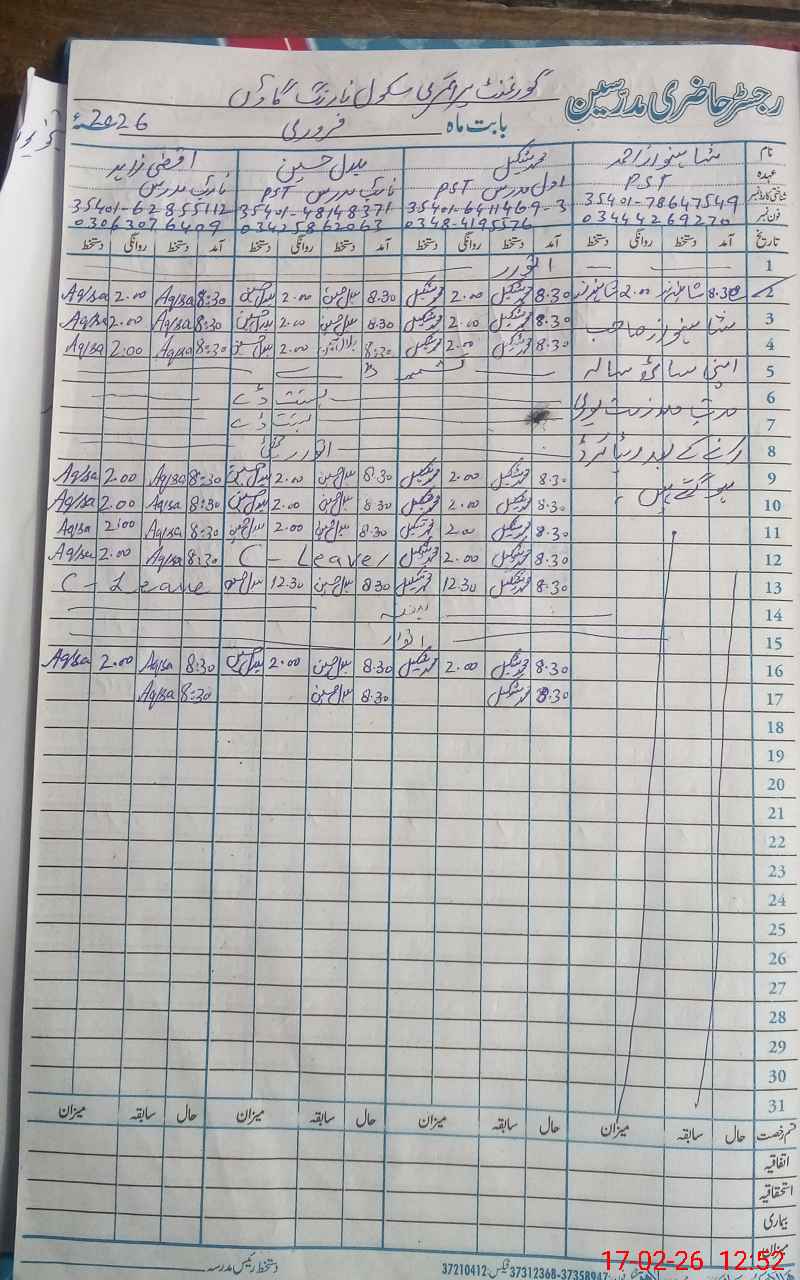 رجسٹر حاضری مدرسین گورنمنٹ پرائمری سکول نارنگ گاؤں
بابت ماہ فروری 2026ء
نام شاہنواز احمد محمد شکیل بلال حسین اقضیٰ زاہد
عہدہ PST اول مدرس PST نائب مدرس PST نائب مدرس
شناختی کارڈ نمبر 35401-78647549 35401-6411469-3 35401-48148371 35401-62855112
فون نمبر 03444269270 0348-4195576 03425862063 03063076409
تاریخ آمد دستخط روانگی دستخط آمد دستخط روانگی دستخط آمد دستخط روانگی دستخط آمد دستخط روانگی دستخط
1 اتوار
2 8.30 شاہنواز 2.00 شاہنواز 8.30 محمد شکیل 2.00 محمد شکیل 8.30 بلال حسین 2.00 بلال حسین 8:30 Aqsa 2.00 Aqsa
3 شاہنواز صاحب 8.30 محمد شکیل 2.00 محمد شکیل 8.30 بلال حسین 2.00 بلال حسین 8:30 Aqsa 2.00 Aqsa
4 8.30 محمد شکیل 2.00 محمد شکیل 8:30 بلال حسین 2.00 بلال حسین 8:30 Aqsa 2:00 Aqsa
5 اپنی ساٹھ سالہ کشمیر ڈے
6 مدتِ ملازمت پوری بسنت ڈے
7 بسنت ڈے
8 کرنے کے بعد ریٹائرڈ اتوار
9 ہو گئے ہیں 8.30 محمد شکیل 2.00 محمد شکیل 8.30 بلال حسین 2.00 بلال حسین 8:30 Aqsa 2.00 Aqsa
10 8.30 محمد شکیل 2.00 محمد شکیل 8.30 بلال حسین 2.00 بلال حسین 8:30 Aqsa 2.00 Aqsa
11 8.30 محمد شکیل 2.00 محمد شکیل 8.30 بلال حسین 2.00 بلال حسین 8:30 Aqsa 2:00 Aqsa
12 8.30 محمد شکیل 2.00 محمد شکیل C-Leave 8:30 Aqsa 2.00 Aqsa
13 8.30 محمد شکیل 12.30 محمد شکیل 8.30 بلال حسین 12.30 بلال حسین C-Leave
14 ہفتہ
15 اتوار
16 8.30 محمد شکیل 2.00 محمد شکیل 8.30 بلال حسین 2.00 بلال حسین 8:30 Aqsa 2.00 Aqsa
17 8.30 محمد شکیل 8.30 بلال حسین 8:30 Aqsa
18
19
20
21
22
23
24
25
26
27
28
29
30
31
قسم رخصت حال سابقہ میزان حال سابقہ میزان حال سابقہ میزان حال سابقہ میزان
اتفاقیہ
استحقاقیہ
بیماری
میزان
دستخط رئیس مدرسہ
37358947-37312368 فیکس: 37210412
17-02-26 12:52